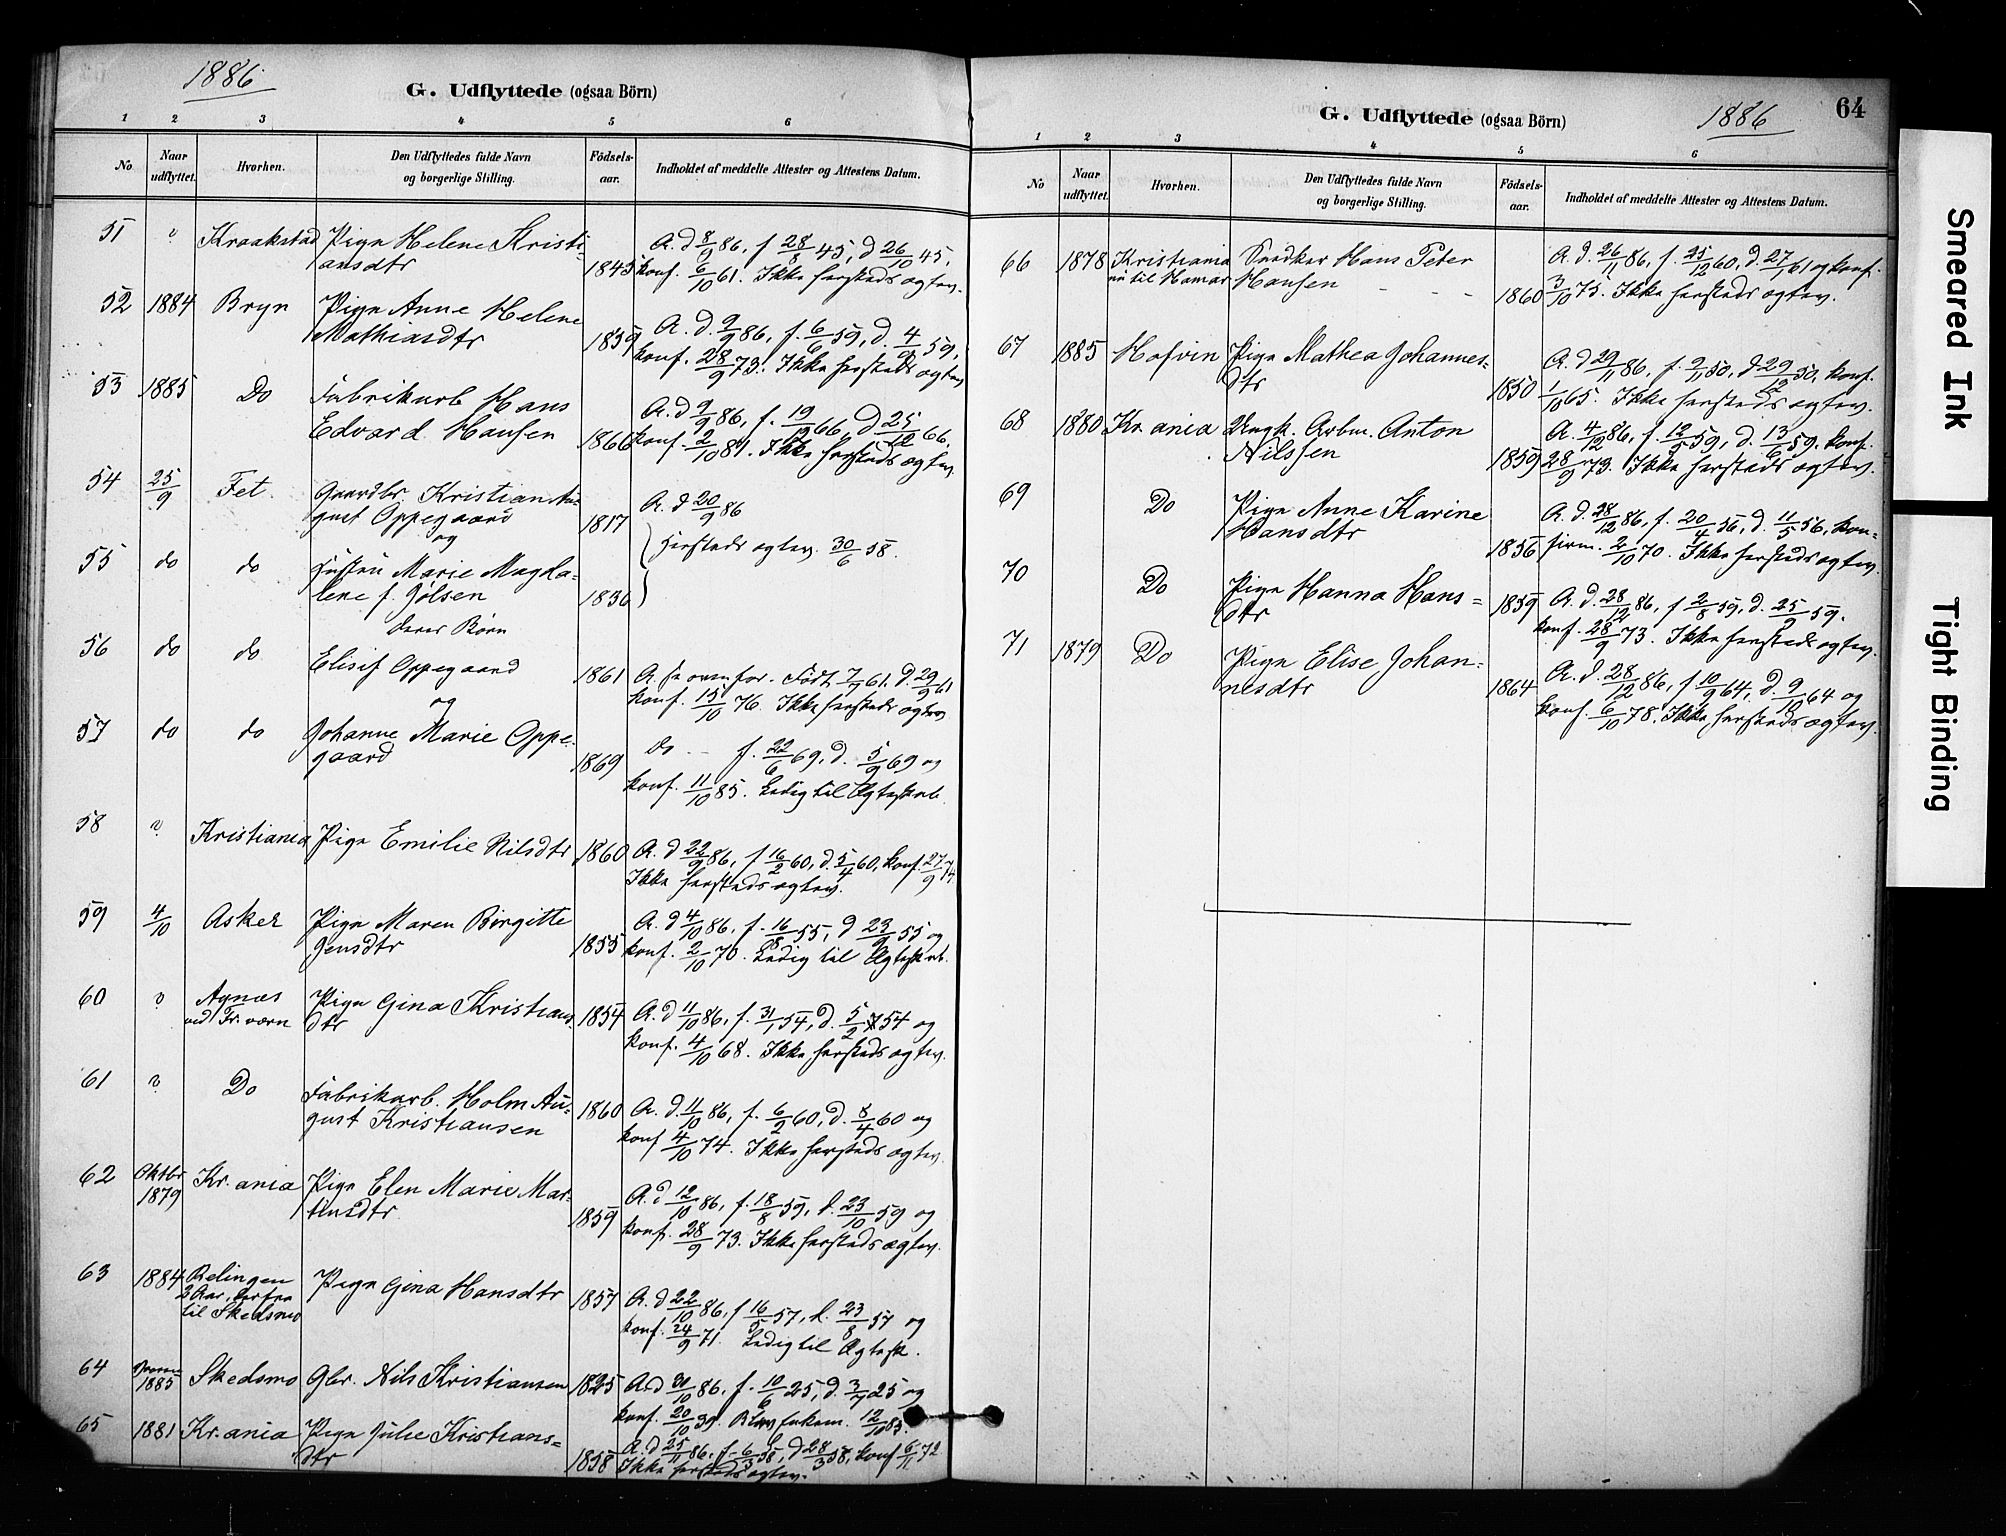 1886
G. Udflyttede (ogsaa Börn)
1 2 3 4 5 6
No Naar udflyttet. Hvorhen. Den Udflyttedes fulde Navn og borgerlige Stilling. Födsels-aar. Indholdet af meddelte Attester og Attestens Datum.
51 " Kraakstad Pige Helene Kristi-
ansdtr 1845 A. d 8/9 86, f 28/8 45, d 26/10 45,
konf. 6/10 61. Ikke hersteds ægtev.
52 1884 Bryn Pige Anne Helene
Mathiasdtr 1859 A. d. 9/9 86, f. 6/6 59, d. 4/9 59,
konf. 28/9 73. Ikke hersteds ægtev
53 1885 Do Fabrikarb Hans
Edvard Hansen 1866 A. d 9/9 86, f. 19/12 66, d 25/12 66.
konf. 2/10 81. Ikke hersteds ægtev.
54 25/9 Fet. Gaardbr. Kristian Au-
gust Oppegaard 1817 A. d 20/9 86
og hersteds ægtev. 30/6 58.
55 do do Hustru Marie Magda-
lene f. Jølsen 1836
deres Børn
56 do do Elisif Oppegaard 1861 A. se ovenfor. Født 7/7 61. d. 29/9 61
og konf. 15/10 76. Ikke hersteds ægtev
57 do do Johanne Marie Oppe-
gaard 1869 do — f. 22/6 69, d. 5/9 69 og
konf. 11/10 85. Ledig til Ægteskab.
58 " Kristiania Pige Emilie Nilsdtr 1860 A. d 22/9 86, f 16/2 60, d. 5/4 60, konf. 27/9 74
Ikke hersteds ægtev.
59 4/10 Asker Pige Maren Birgitte
Jensdtr 1855 A. d 4/10 86, f. 16/8 55, d 23/9 55 og
konf. 2/10 70. Ledig til Ægteskab.
60 " Agnæs
ved Fr. værn Pige Gina Kristians
dtr 1854 A. d 11/10 86, f. 31/1 54, d. 5/2 54 og
konf. 4/10 68. Ikke hersteds ægtev.
61 " Do Fabrikarb. Holm Au-
gust Kristiansen 1860 A. d. 11/10 86, f. 6/2 60, d. 8/4 60 og
konf 4/10 74. Ikke hersteds ægtev.
62 Oktbr
1879 Kr.ania Pige Elen Marie Mar-
tinsdtr 1859 A. d 12/10 86, f. 18/8 59, d. 23/10 59 og
konf. 28/9 73. Ikke hersteds ægtev.
63 1884 Relingen
2 Aar, derfra
til Skedsmo Pige Gina Hansdtr 1857 A. d 22/10 86, f 16/5 57, d. 23/8 57 og
konf. 24/9 71. Ledig til Ægtesk.
64 1885 Skedsmo Gbr. Nils Kristiansen 1825 A. d 30/10 86, f. 10/6 25, d. 3/7 25 og
konf. 20/10 39. Blev Enkem. 12/10 83.
65 1881 Kr.ania Pige Julie Kristians-
dtr 1858 A. d 25/11 86, f. 6/3 58, d 28/3 58, konf 6/11 72
Ikke hersteds ægtev.
G. Udflyttede (ogsaa Börn)
1886
64
1 2 3 4 5 6
No Naar udflyttet. Hvorhen. Den Udflyttedes fulde Navn og borgerlige Stilling. Födsels-aar. Indholdet af meddelte Attester og Attestens Datum.
66 1878 Kristiania
nu til Hamar Snedker Hans Peter
Hansen 1860 A. d. 26/11 86, f. 25/12 60, d. 27/1 61 og konf.
3/10 75. Ikke hersteds ægtev.
67 1885 Hofvin Pige Mathea Johannes-
dtr 1850 A. d 29/11 86, f. 2/11 50, d 29/12 50, konf.
1/10 65. Ikke hersteds ægtev.
68 1880 Kr.ania Ungk. Arbm. Anton
Nilssen 1859 A. 4/12 86, f. 12/5 59, d. 13/6 59, konf.
28/9 73. Ikke hersteds ægtev.
69 Do Pige Anne Karine
Hansdtr 1856 A. d. 28/12 86, f. 20/4 56, d. 11/5 56, kon-
firm. 2/10 70. Ikke hersteds ægtev.
70 Do Pige Hanna Hans-
dtr 1859 A. d. 28/12 86, f 2/8 59, d. 25/9 59.
konf. 28/9 73. Ikke hersteds ægtev.
71 1879 Do Pige Elise Johan-
nesdtr 1864 A. d. 28/12 86, f 10/9 64, d. 9/10 64 og
konf. 6/10 78. Ikke hersteds ægtev.
Smeared Ink
Tight Binding